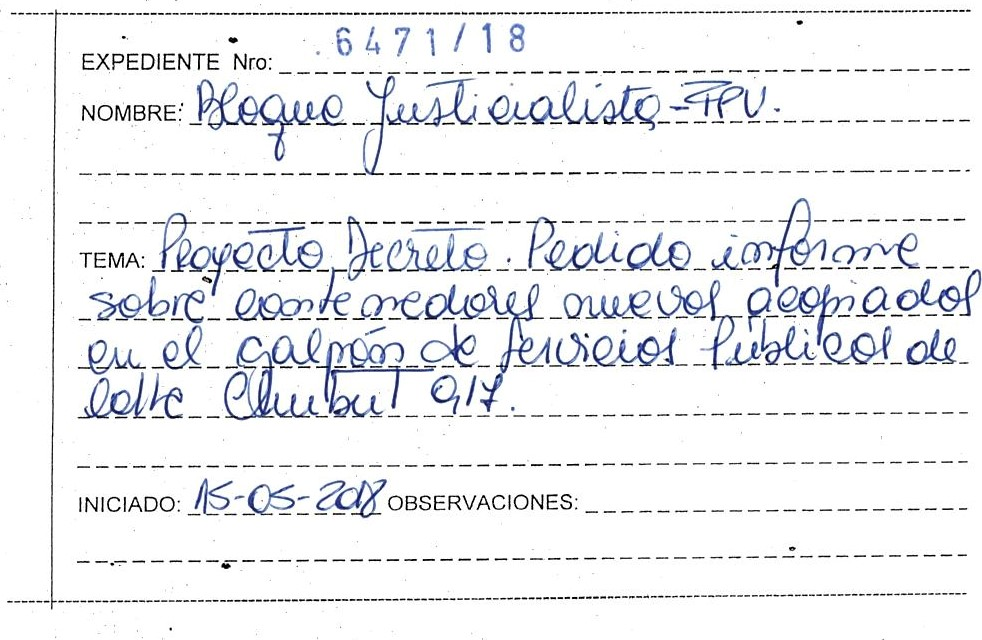 EXPEDIENTE Nro: 6471/18
NOMBRE: Bloque Justicialista-FPV.
TEMA: Proyecto Decreto. Pedido informe
sobre contenedores nuevos acopiados
en el galpón de Servicios Públicos de
calle Chubut 917.
INICIADO: 15-05-2018 OBSERVACIONES: